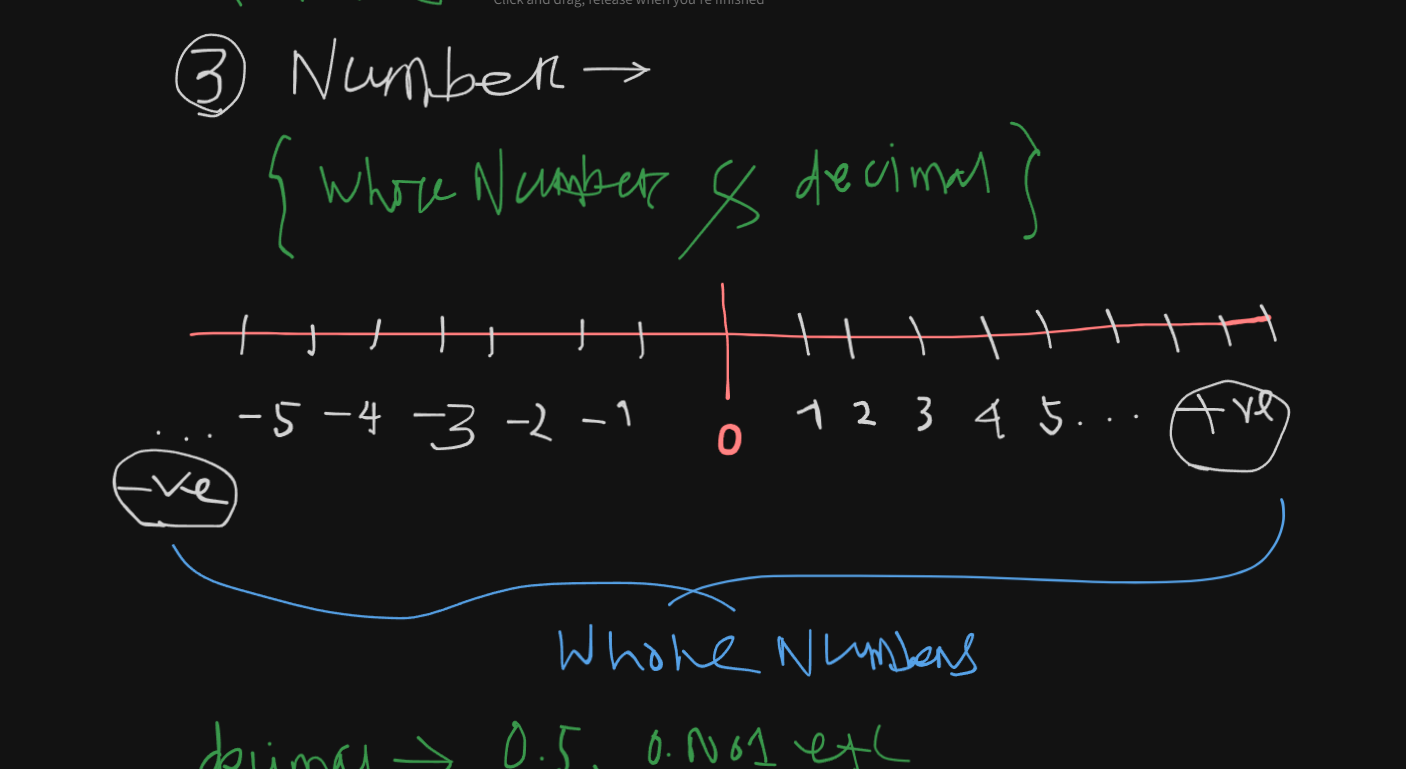 Click and drag, release when you're finished
③ Number →
{ Whole Number & decimal }
-5 -4 -3 -2 -1 0 1 2 3 4 5 ... +ve
...
-ve
Whole Numbers
decimal → 0.5, etc